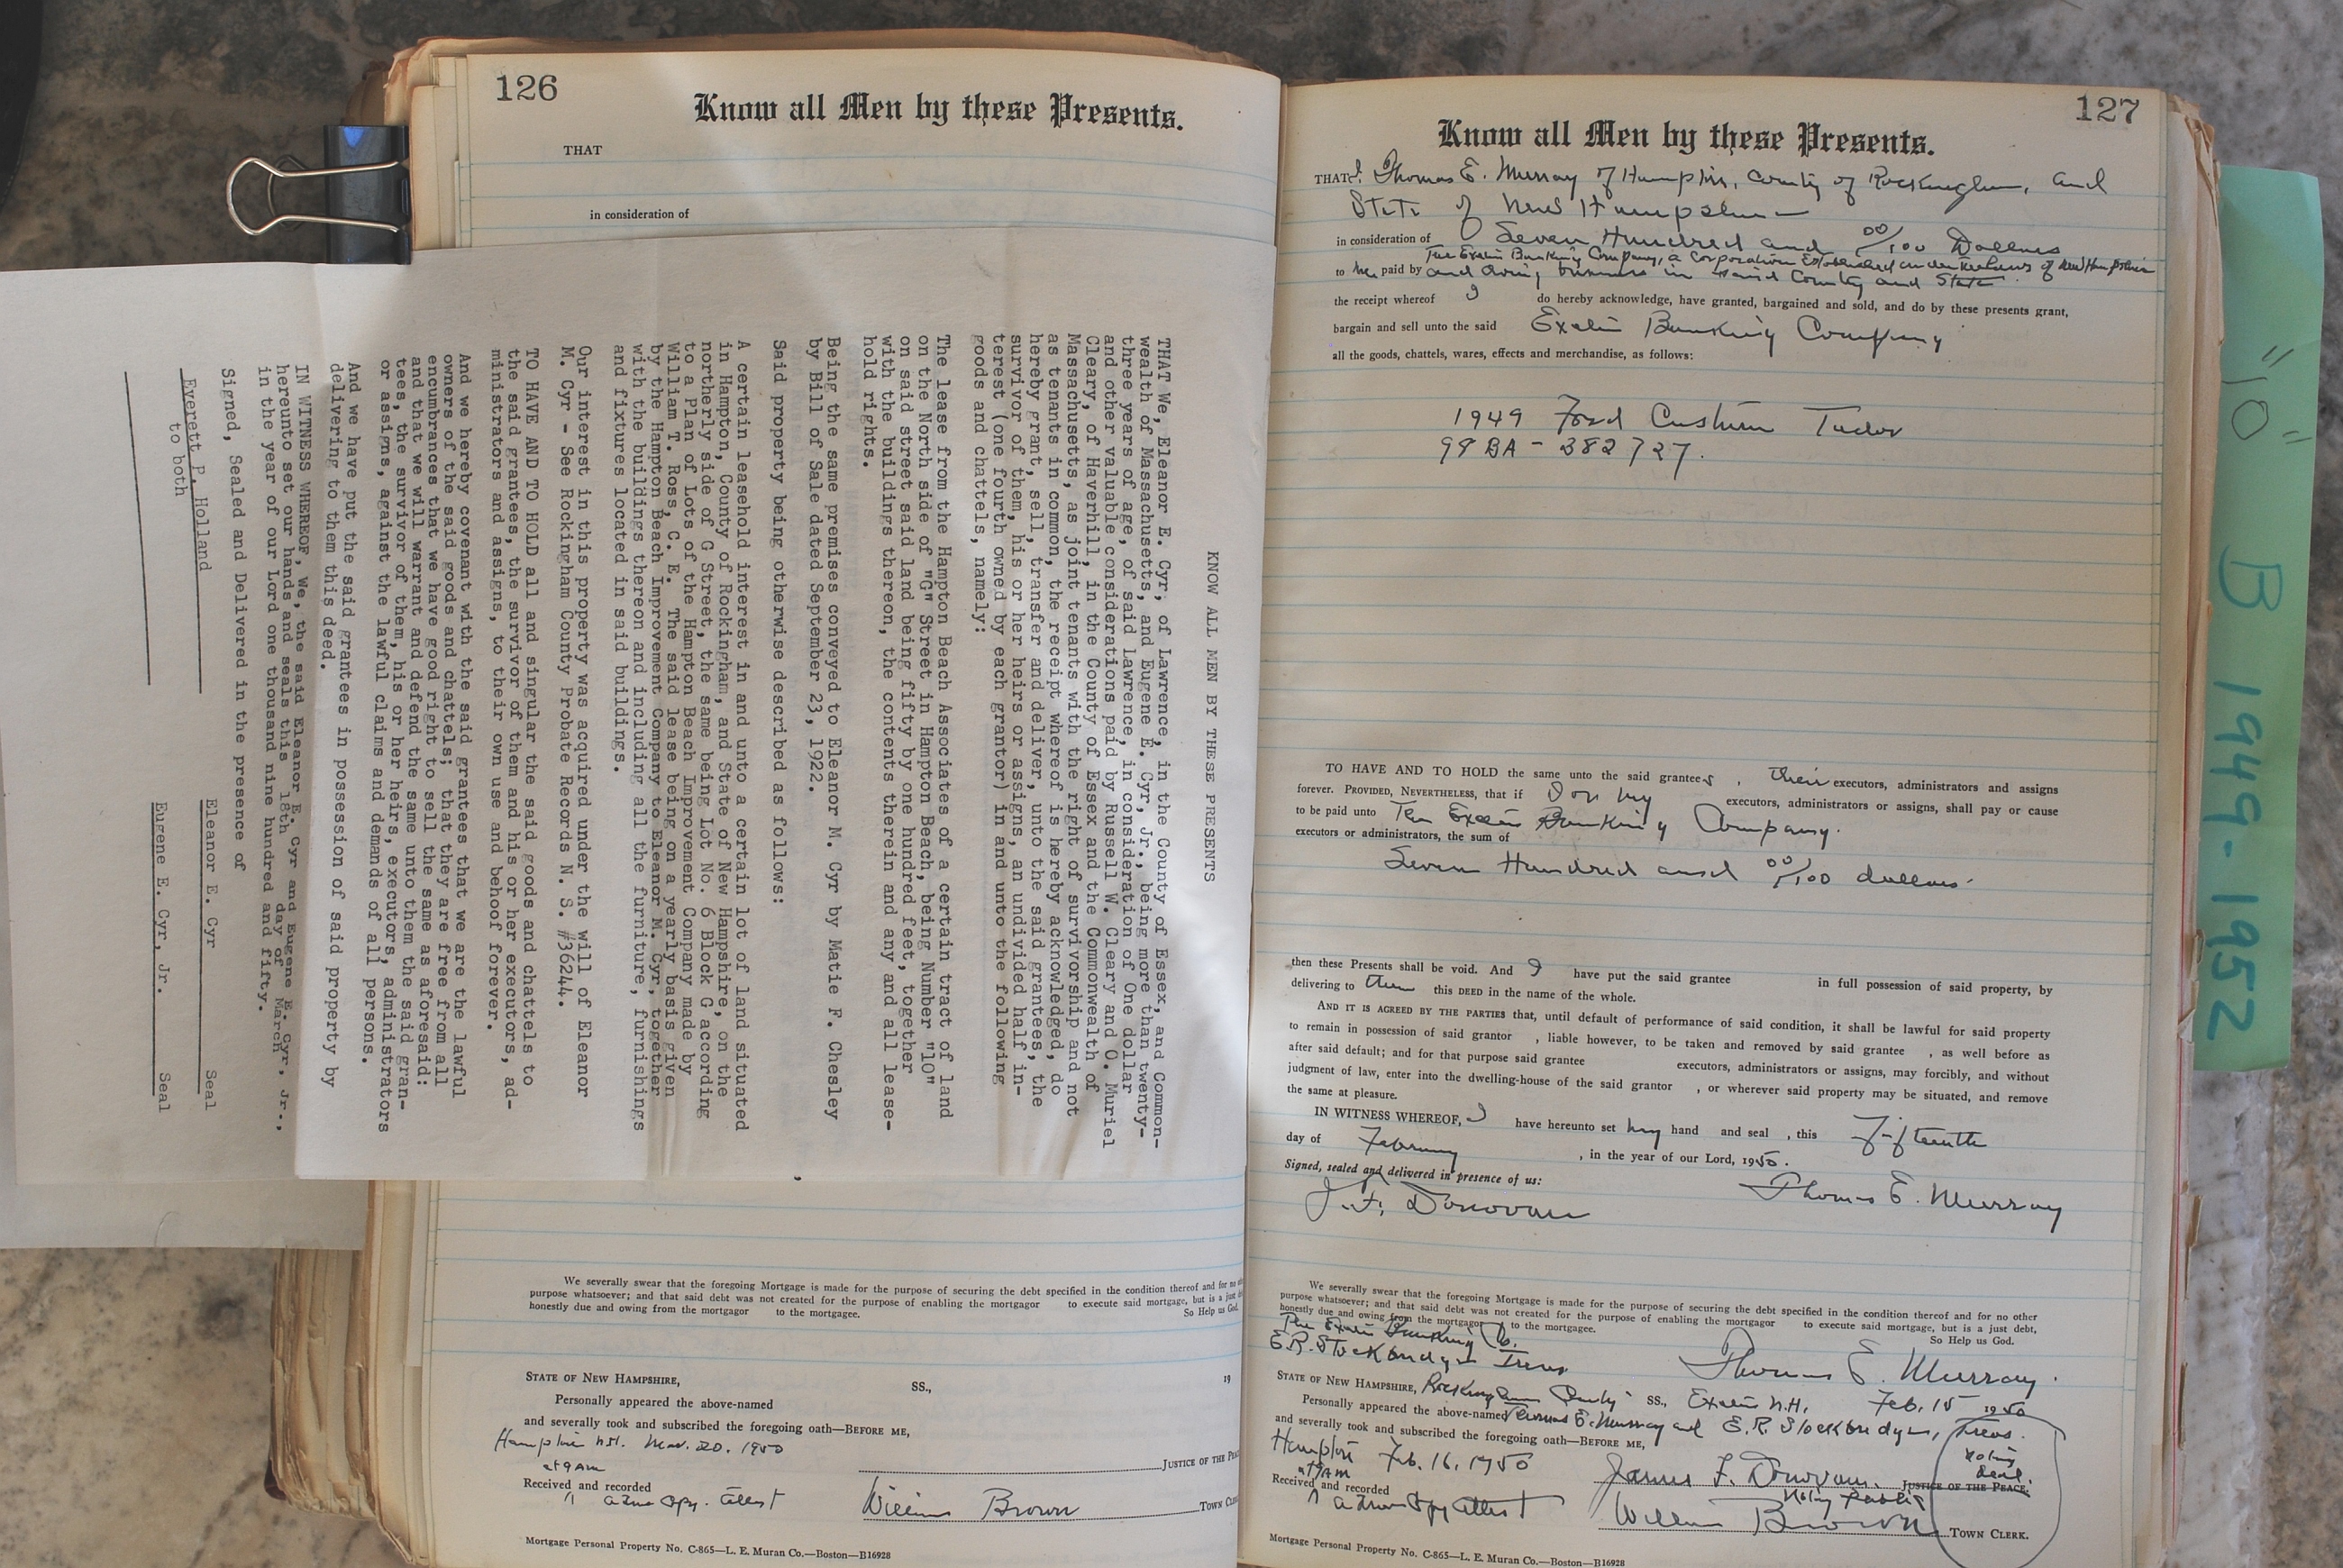 126
Know all Men by these Presents.
THAT
in consideration of
KNOW ALL MEN BY THESE PRESENTS
THAT We, Eleanor E. Cyr, of Lawrence, in the County of Essex, and Common-
wealth of Massachusetts, and Eugene E. Cyr, Jr., being more than twenty-
three years of age, of said Lawrence, in consideration of One dollar
and other valuable considerations paid by Russell W. Cleary and O. Muriel
Cleary, of Haverhill, in the County of Essex and the Commonwealth of
Massachusetts, as joint tenants with the right of survivorship and not
as tenants in common, the receipt whereof is hereby acknowledged, do
hereby grant, sell, transfer and deliver, unto the said grantees, the
survivor of them, his or her heirs or assigns, an undivided half in-
terest (one fourth owned by each grantor) in and unto the following
goods and chattels, namely:
The lease from the Hampton Beach Associates of a certain tract of land
on the North side of "G" Street in Hampton Beach, being Number "10"
on said street said land being fifty by one hundred feet, together
with the buildings thereon, the contents therein and any and all lease-
hold rights.
Being the same premises conveyed to Eleanor M. Cyr by Matie F. Chesley
by Bill of Sale dated September 23, 1922.
Said property being otherwise described as follows:
A certain leasehold interest in and unto a certain lot of land situated
in Hampton, County of Rockingham, and State of New Hampshire, on the
northerly side of G Street, the same being Lot No. 6 Block G according
to a Plan of Lots of the Hampton Beach Improvement Company made by
William T. Ross, C. E. The said lease being on a yearly basis given
by the Hampton Beach Improvement Company to Eleanor M. Cyr, together
with the buildings thereon and including all the furniture, furnishings
and fixtures located in said buildings.
Our interest in this property was acquired under the will of Eleanor
M. Cyr - See Rockingham County Probate Records N. S. #36244.
TO HAVE AND TO HOLD all and singular the said goods and chattels to
the said grantees, the survivor of them and his or her executors, ad-
ministrators and assigns, to their own use and behoof forever.
And we hereby covenant with the said grantees that we are the lawful
owners of the said goods and chattels; that they are free from all
encumbrances that we have good right to sell the same as aforesaid:
and that we will warrant and defend the same unto them the said gran-
tees, the survivor of them, his or her heirs, executors, administrators
or assigns, against the lawful claims and demands of all persons.
And we have put the said grantees in possession of said property by
delivering to them this deed.
IN WITNESS WHEREOF, we, the said Eleanor E. Cyr and Eugene E. Cyr, Jr.,
hereunto set our hands and seals this 18th day of March
in the year of our Lord one thousand nine hundred and fifty.
Signed, Sealed and Delivered in the presence of
Everett P. Holland
to both
Eleanor E. Cyr Seal
Eugene E. Cyr, Jr. Seal
We severally swear that the foregoing Mortgage is made for the purpose of securing the debt specified in the condition thereof and for no
purpose whatsoever; and that said debt was not created for the purpose of enabling the mortgagor to execute said mortgage, but is a just
honestly due and owing from the mortgagor to the mortgagee. So Help us God.
STATE OF NEW HAMPSHIRE, SS., 19
Personally appeared the above-named
and severally took and subscribed the foregoing oath—BEFORE ME,
Hampton N.H. Mar. 20. 1950
at 9 AM
JUSTICE OF THE
Received and recorded
a true copy. attest William Brown TOWN
Mortgage Personal Property No. C-865—L. E. Muran Co.—Boston—B16928
127
Know all Men by these Presents.
THAT I, Thomas E. Murray of Hampton, County of Rockingham, and
State of New Hampshire
in consideration of Seven Hundred and 00/100 Dollars
The Exeter Banking Company, a Corporation Established under the laws of New Hampshire
to me paid by and doing business in said County and State.
the receipt whereof I do hereby acknowledge, have granted, bargained and sold, and do by these presents grant,
bargain and sell unto the said Exeter Banking Company
all the goods, chattels, wares, effects and merchandise, as follows:
1949 Ford Custom Tudor
98 BA - 382727.
TO HAVE AND TO HOLD the same unto the said grantees, their executors, administrators and assigns
forever. PROVIDED, NEVERTHELESS, that if I or my executors, administrators or assigns, shall pay or cause
to be paid unto The Exeter Banking Company.
executors or administrators, the sum of
Seven Hundred and 00/100 dollars.
then these Presents shall be void. And I have put the said grantee in full possession of said property, by
delivering to them this DEED in the name of the whole.
AND IT IS AGREED BY THE PARTIES that, until default of performance of said condition, it shall be lawful for said property
to remain in possession of said grantor , liable however, to be taken and removed by said grantee , as well before as
after said default; and for that purpose said grantee executors, administrators or assigns, may forcibly, and without
judgment of law, enter into the dwelling-house of the said grantor , or wherever said property may be situated, and remove
the same at pleasure.
IN WITNESS WHEREOF, I have hereunto set my hand and seal , this Fifteenth
day of February , in the year of our Lord, 1950.
Signed, sealed and delivered in presence of us:
J. F. Donovan Thomas E. Murray
We severally swear that the foregoing Mortgage is made for the purpose of securing the debt specified in the condition thereof and for no other
purpose whatsoever; and that said debt was not created for the purpose of enabling the mortgagor to execute said mortgage, but is a just debt,
honestly due and owing from the mortgagor to the mortgagee. So Help us God.
The Exeter Banking Co.
E.R. Stockbridge Treas Thomas E. Murray.
STATE OF NEW HAMPSHIRE, Rockingham County SS., Exeter N.H. Feb. 15 1950
Personally appeared the above-named Thomas E. Murray and E.R. Stockbridge, Treas.
and severally took and subscribed the foregoing oath—BEFORE ME,
Hampton Feb. 16, 1950
at 9 AM
James F. Donovan. JUSTICE OF THE PEACE.
Notary Public
Notary
Seal.
Received and recorded
a true copy attest William Brown TOWN CLERK.
Mortgage Personal Property No. C-865—L. E. Muran Co.—Boston—B16928
"10" B 1949-1952